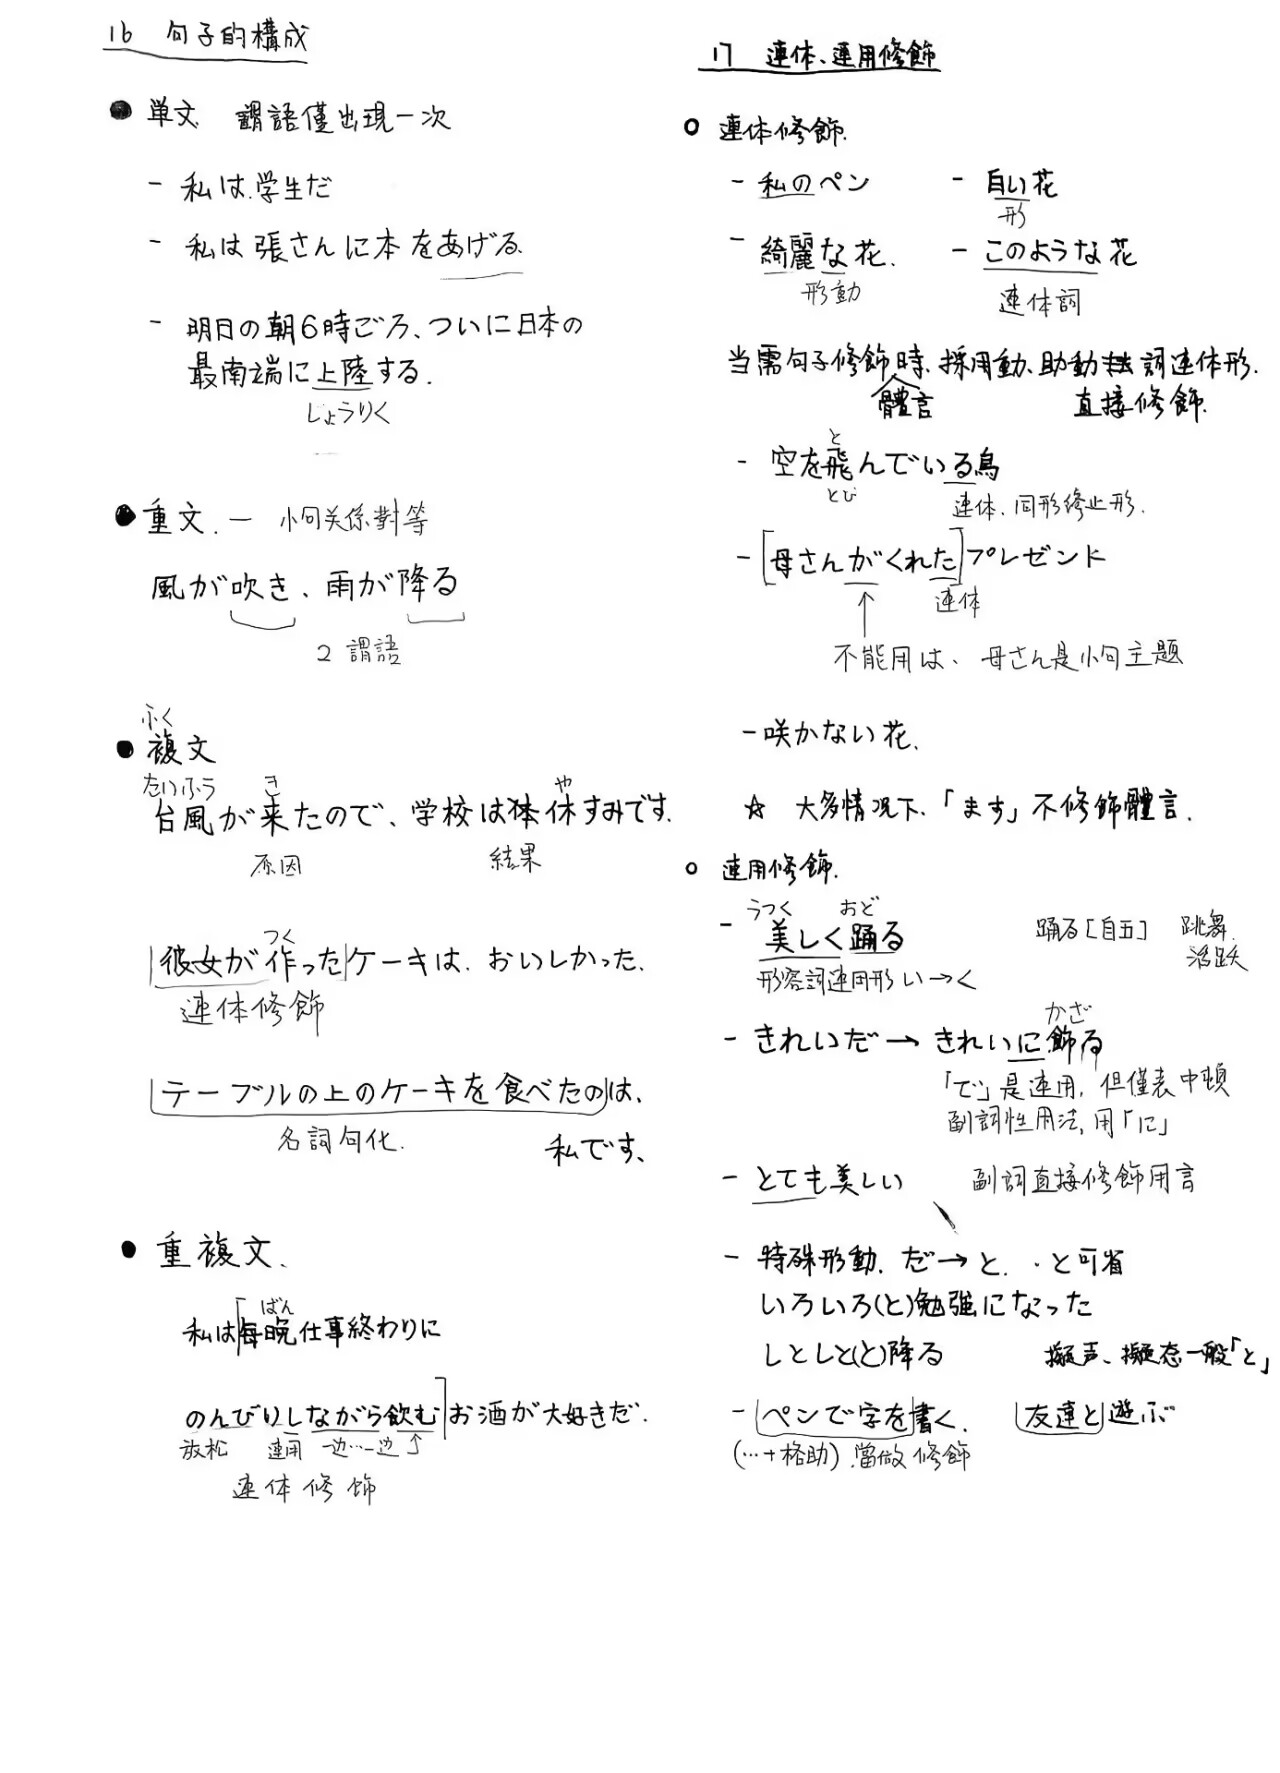 16 句子的構成
● 単文 謂語僅出現一次
- 私は学生だ
- 私は張さんに本をあげる
- 明日の朝6時ごろ、ついに日本の
最南端に上陸する.
じょうりく
● 重文. — 小句关係對等
風が吹き、雨が降る
2 謂語
ふく
● 複文
たいふう き や
台風が来たので、学校は休すみです.
原因 結果
つく
彼女が作ったケーキは、おいしかった.
連体修飾
テーブルの上のケーキを食べたのは、
名詞句化. 私です、
● 重複文、
ばん
私は毎晩仕事終わりに
のんびりしながら飲むお酒が大好きだ.
放松 連用 一边…一边 ↑
連体修飾
17 連体、連用修飾
○ 連体修飾.
- 私のペン - 白い花
形
- 綺麗な花. - このような花
形動 連体詞
当需句子修飾時、採用動、助動詞連体形.
體言 直接修飾.
と
- 空を飛んでいる鳥
とび 連体、同形終止形.
- [母さんがくれた]プレゼンド
↑ 連体
不能用は、母さん是小句主題
- 咲かない花.
☆ 大多情况下、「ます」不修飾體言.
○ 連用修飾.
うつく おど
- 美しく踊る 踊る[自五] 跳舞.
活跃
形容詞連用形 い→く
かざ
- きれいだ → きれいに飾る
「で」是連用, 但僅表中頓
副詞性用法, 用「に」
- とても美しい 副詞直接修飾用言
- 特殊形動. だ→と. ・と可省
いろいろ(と)勉強になった
しとしと(と)降る 擬声、擬态一般「と」
- ペンで字を書く. 友達と遊ぶ
(…+格助) 當做修飾